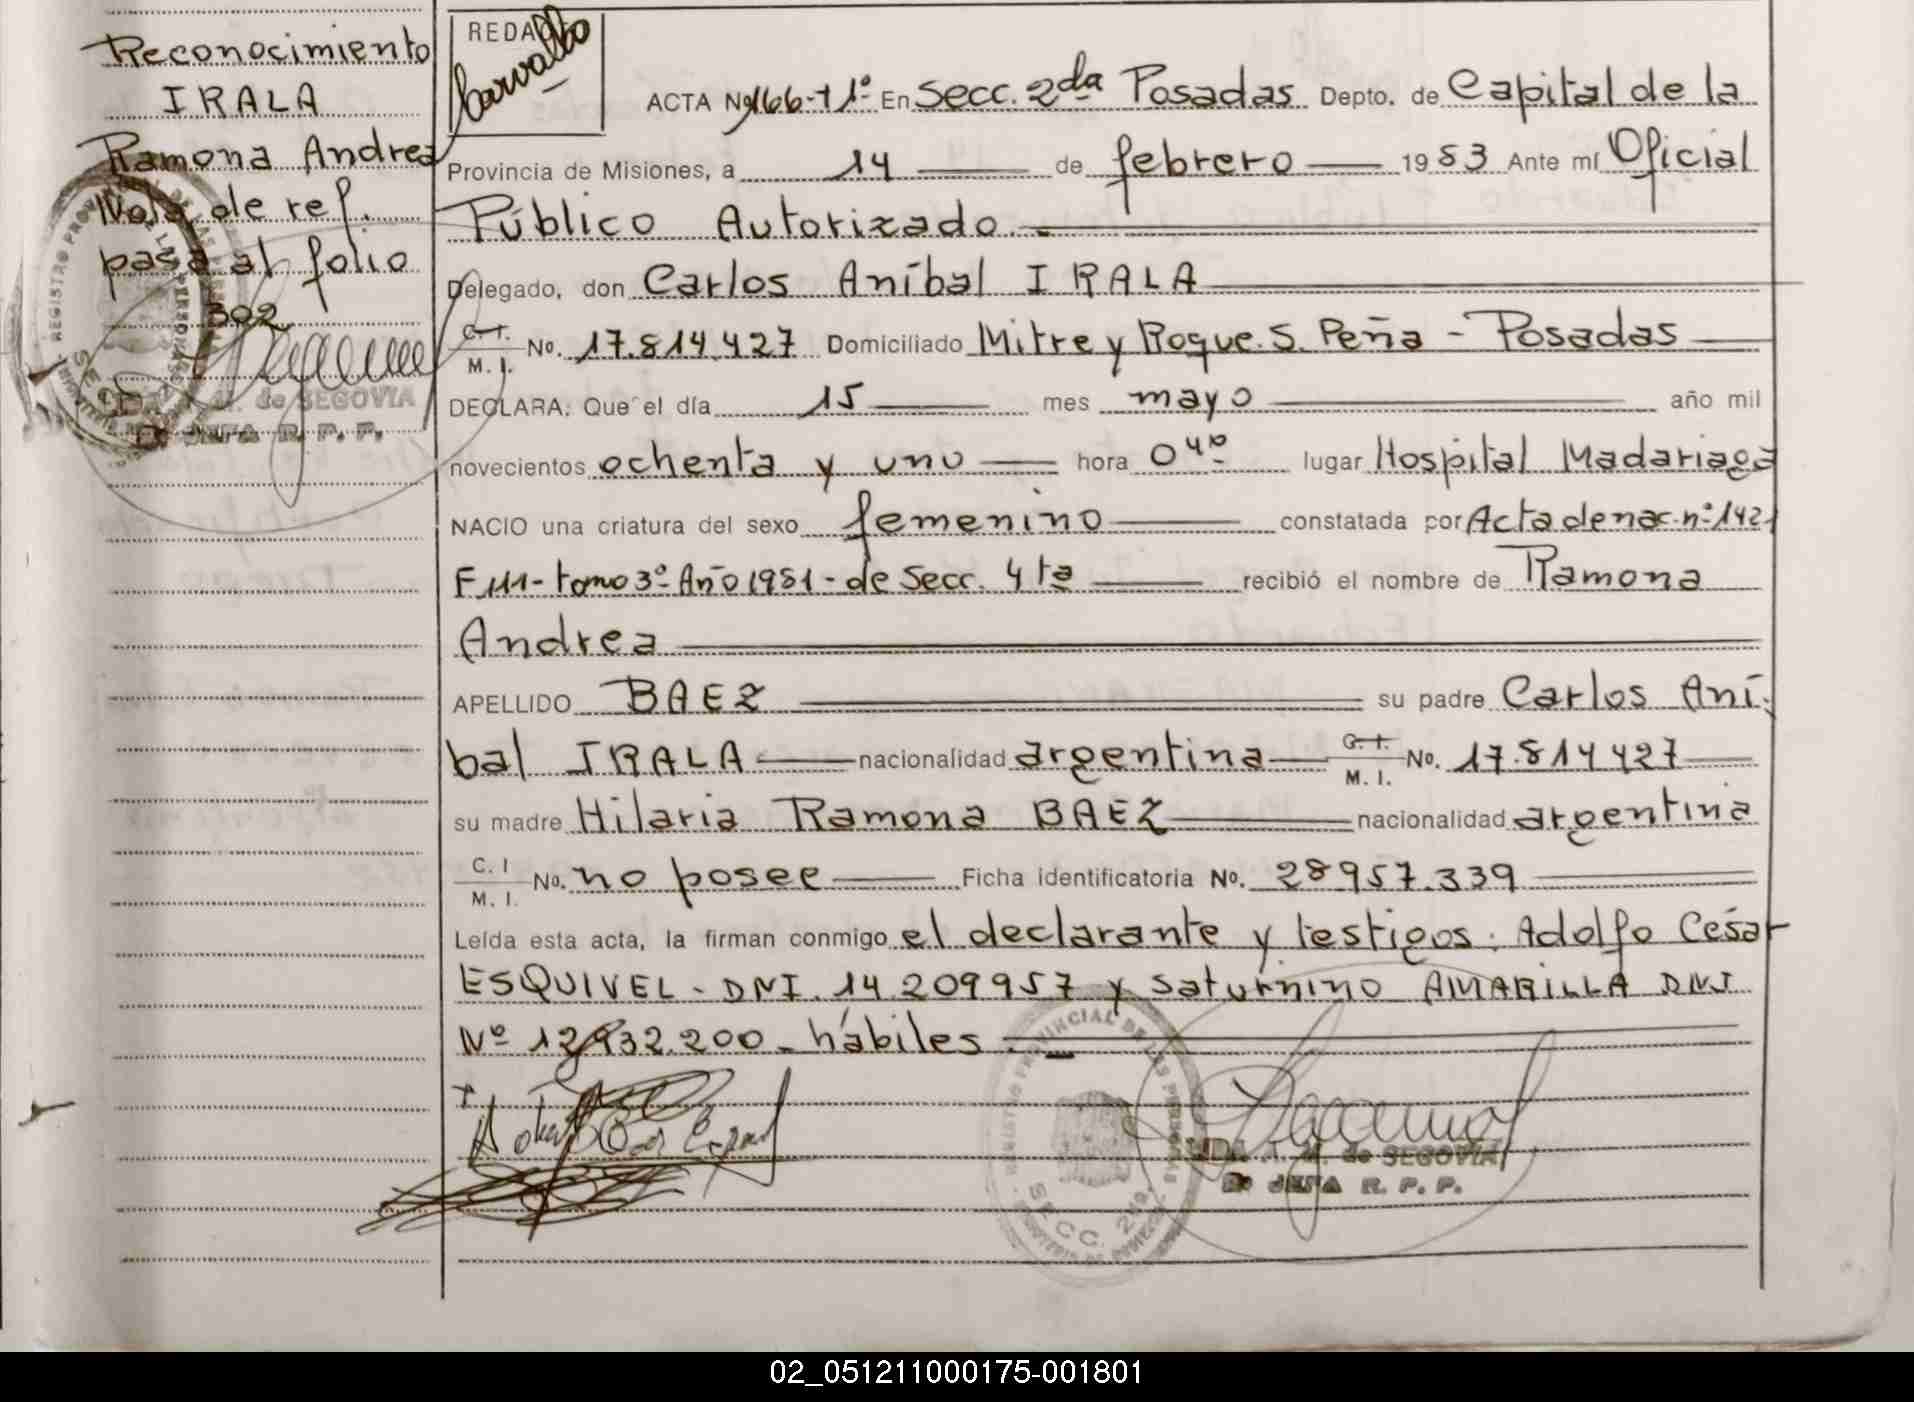 Reconocimiento
IRALA
Ramona Andrea
Nota de ref.
pasa al folio
302
M. de SEGOVIA
JEFA R. P. P.
REDA
Carvallo
ACTA Nº 166-T1º En Secc. 2da Posadas Depto. de Capital de la
Provincia de Misiones, a 14 de febrero 1983 Ante mí Oficial
Público Autorizado.
Delegado, don Carlos Aníbal IRALA
C. I. M. I. No. 17.814.427 Domiciliado Mitre y Roque. S. Peña - Posadas
DECLARA: Que el día 15 mes mayo año mil
novecientos ochenta y uno hora 04 10 lugar Hospital Madariaga
NACIO una criatura del sexo femenino constatada por Acta de nac. nº 1421
F 111 - tomo 3º Año 1981 - de Secc. 4ta recibió el nombre de Ramona
Andrea
APELLIDO BAEZ su padre Carlos Aní-
bal IRALA nacionalidad argentina C. I. M. I. No. 17.814427
su madre Hilaria Ramona BAEZ nacionalidad argentina
C. I M. I. No. no posee Ficha identificatoria No. 28957.339
Leída esta acta, la firman conmigo el declarante y testigos: Adolfo César
ESQUIVEL - DNI. 14.209957 y Saturnino AMARILLA DNI
Nº 12932.200 - hábiles.
REGISTRO PROVINCIAL DE LAS PERSONAS
SECC. 2da.
M. de SEGOVIA
JEFA R. P. P.
02_051211000175-001801